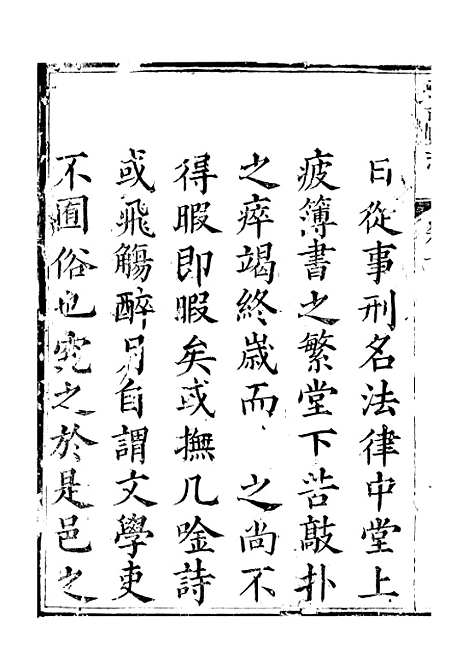 日從事刑名法律中堂上
疲簿書之繁堂下苦敲扑
之瘁竭終歳而 之尚不
得暇即暇矣或撫几唫詩
或飛觴醉月自謂文學吏
不囿俗也究之於是邑之